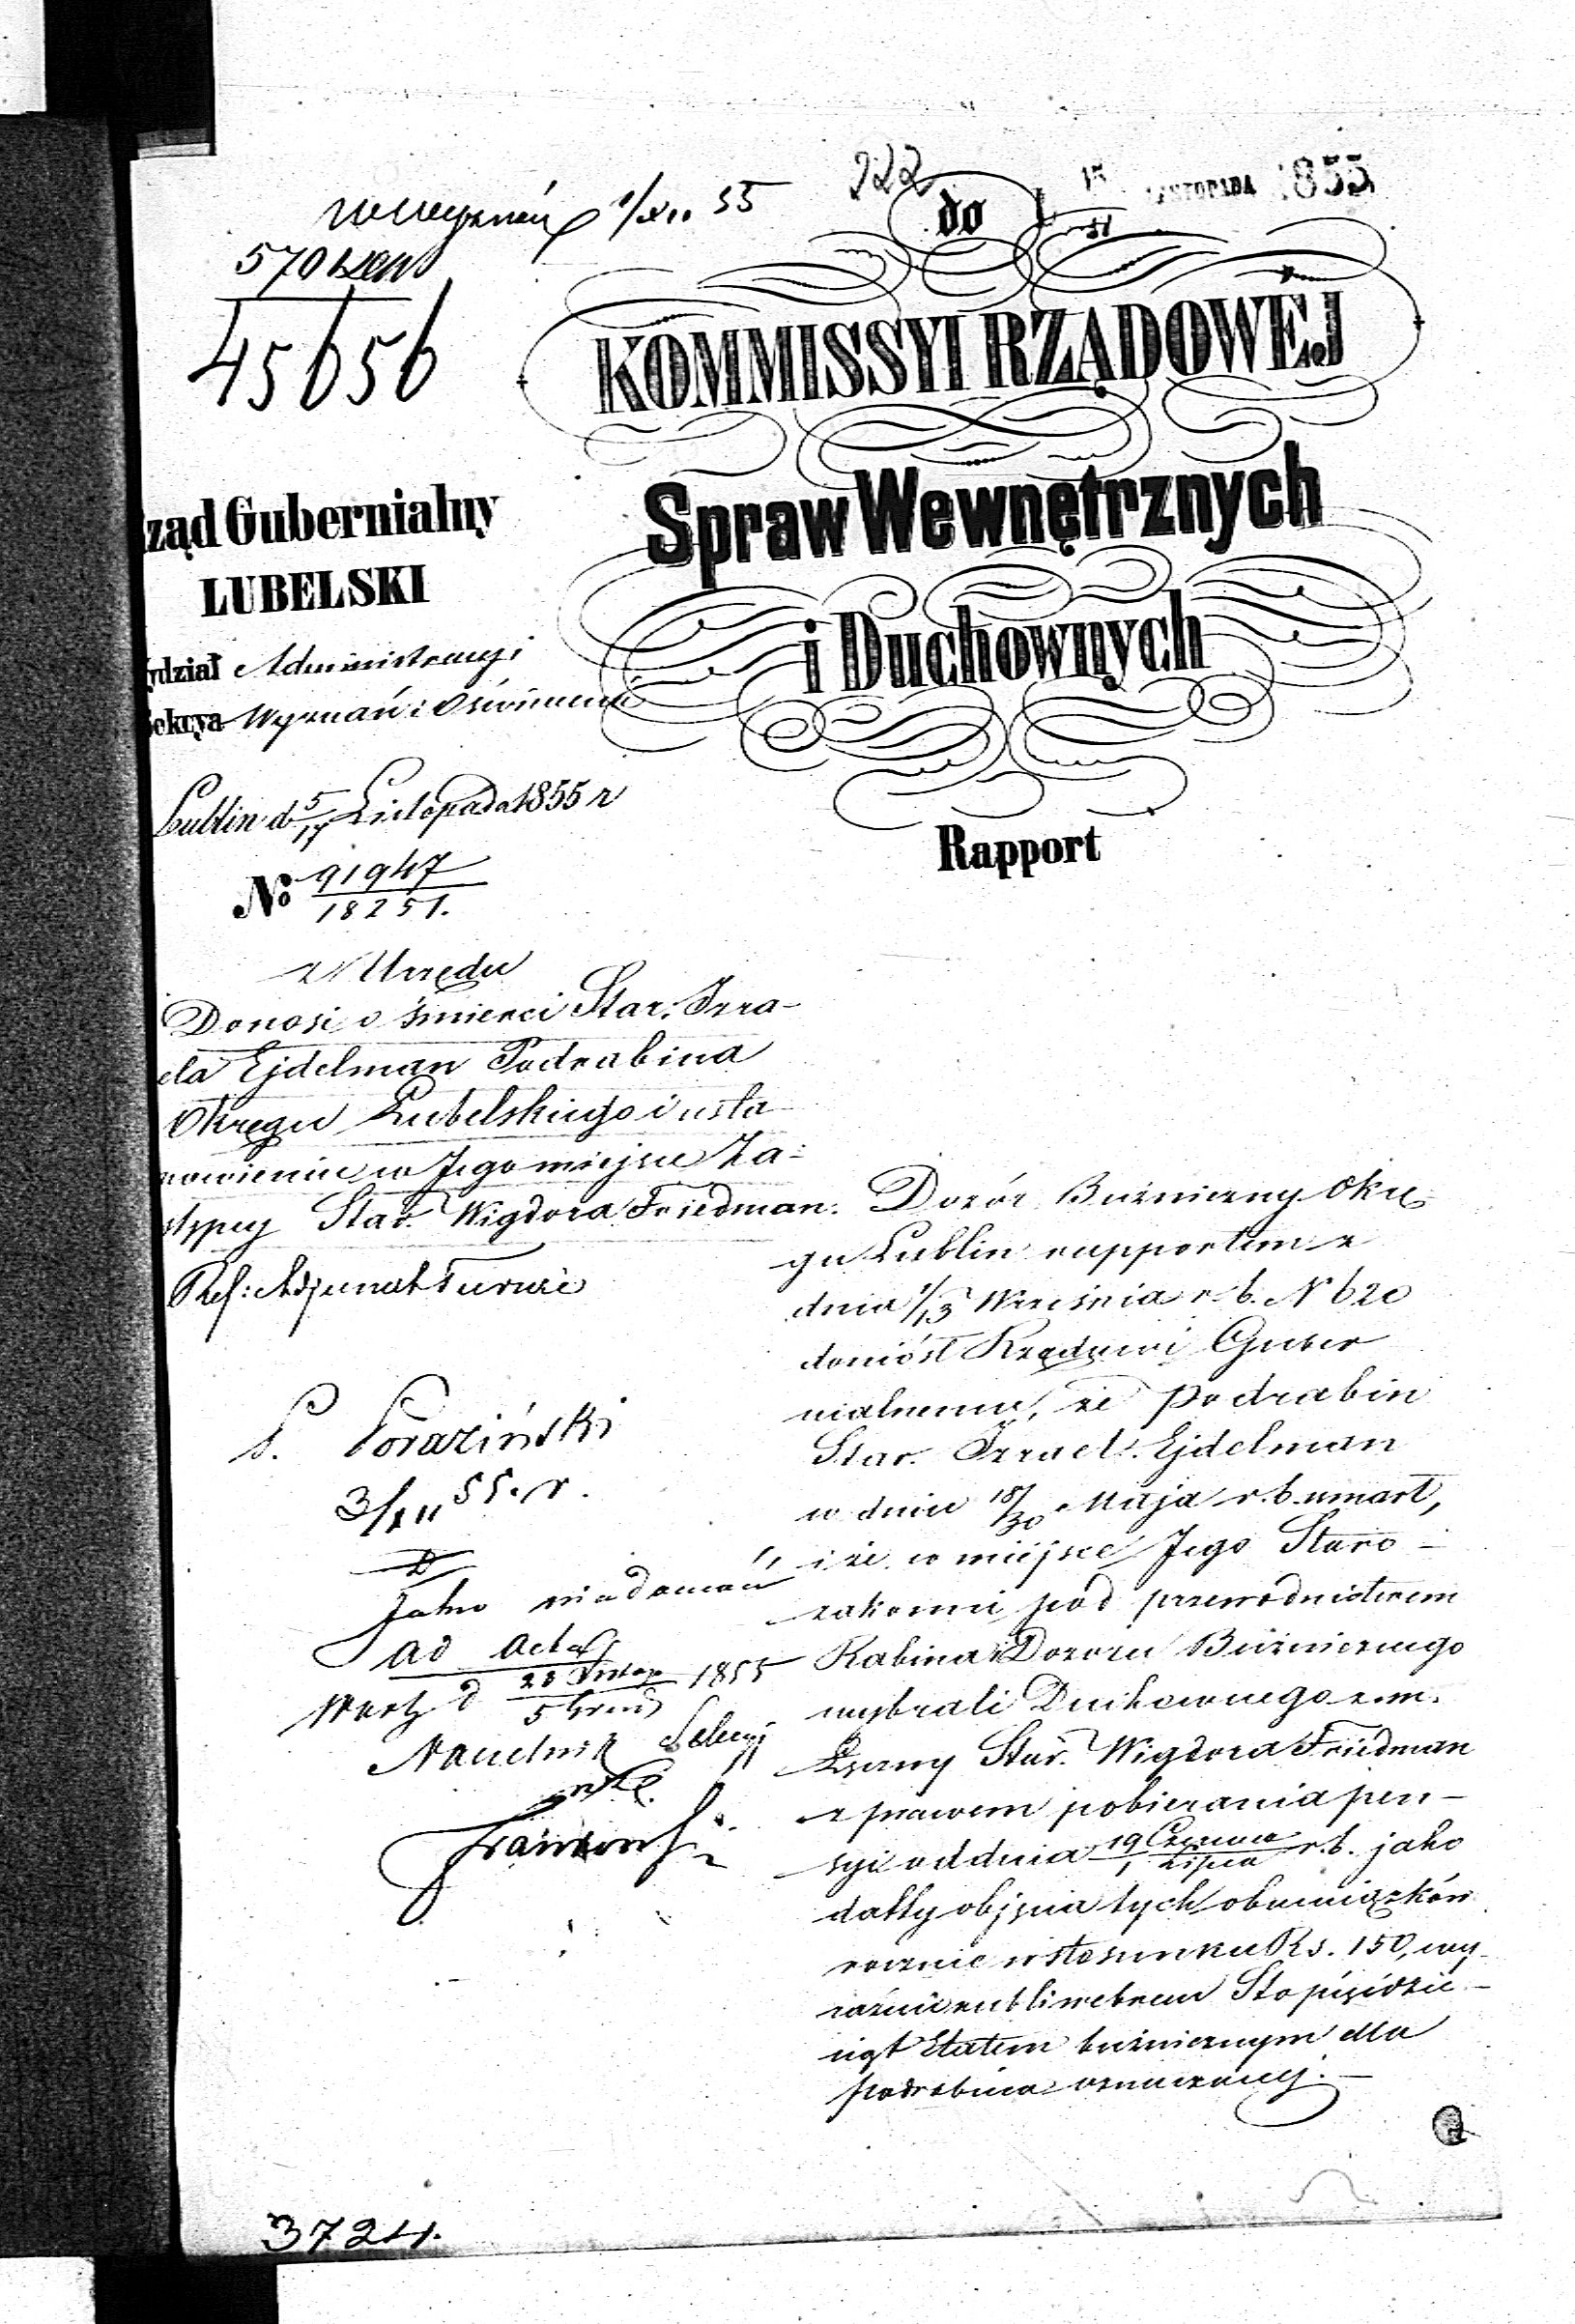 222
do
LISTOPADA 1855
1/XII 55
570
45656
KOMMISSYI RZĄDOWÉJ
Spraw Wewnętrznych
i Duchownych
Rapport
ząd Gubernialny
LUBELSKI
ydział Administracyi
Sekcya Wyznań i Oświecenia
Lublin d. 5/17 Listopada 1855 r
No 91947/18251.
z Urzędu
Donosi o śmierci Star. Izra-
ela Ejdelman Podrabina
Okręgu Lubelskiego i usta
nowieniu w Jego miejsce Za-
stępcy Star. Wigdora Friedman.
Ref: Adjunkt
P. Poraziński
3/XII 55. r.
Jako wiadomość
ad acta
d 23 Listop/5 Grud 1855
Naczelnik Sekcyi
Dozór Bużniczny Okrę
gu Lublin rapportem z
dnia 1/13 Września r. b. N 620
doniósł Rządowi Guber
nialnemu, że Podrabin
Star. Izrael Ejdelman
w dniu 18/30 Maja r. b. umarł,
i że w miejsce Jego Staro-
zakonni pod przewodnictwem
Rabina i Dozoru Bużnicznego
wybrali Duchownego z. m.
Łęczny Star. Wigdora Friedman
z prawem pobierania pen-
syi od dnia 19 Czerwca/1 Lipca r. b. jako
datty objęcia tych obowiązków
rocznie w stosunku Rs. 150, wy
raźnie rubli srebrem Sto pięćdzie-
siąt Etatem bużnicznym dla
podrabina oznaczonej.
3724.